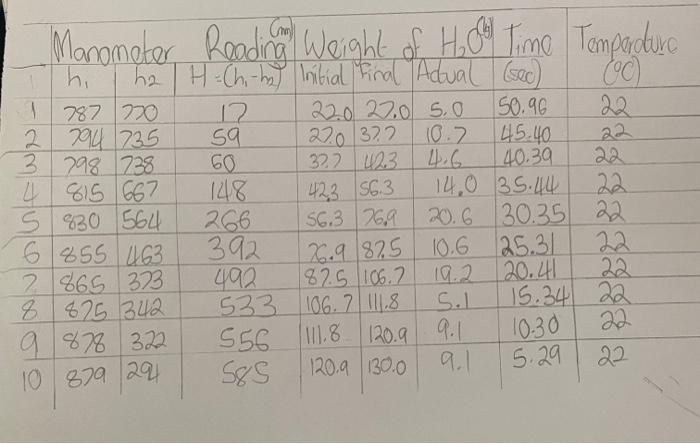 Manometer Reading (mm) Weight of H2O (lb) Time Temperature
h1 h2 H=(h1-h2) Initial Final Actual (sec) (°C)
1 787 770 17 22.0 27.0 5.0 50.96 22
2 794 735 59 27.0 37.7 10.7 45.40 22
3 798 738 60 37.7 42.3 4.6 40.39 22
4 815 667 148 42.3 56.3 14.0 35.44 22
5 830 564 266 56.3 76.9 20.6 30.35 22
6 855 463 392 76.9 87.5 10.6 25.31 22
7 865 373 492 87.5 106.7 19.2 20.41 22
8 875 342 533 106.7 111.8 5.1 15.34 22
9 878 322 556 111.8 120.9 9.1 10.30 22
10 879 294 585 120.9 130.0 9.1 5.29 22